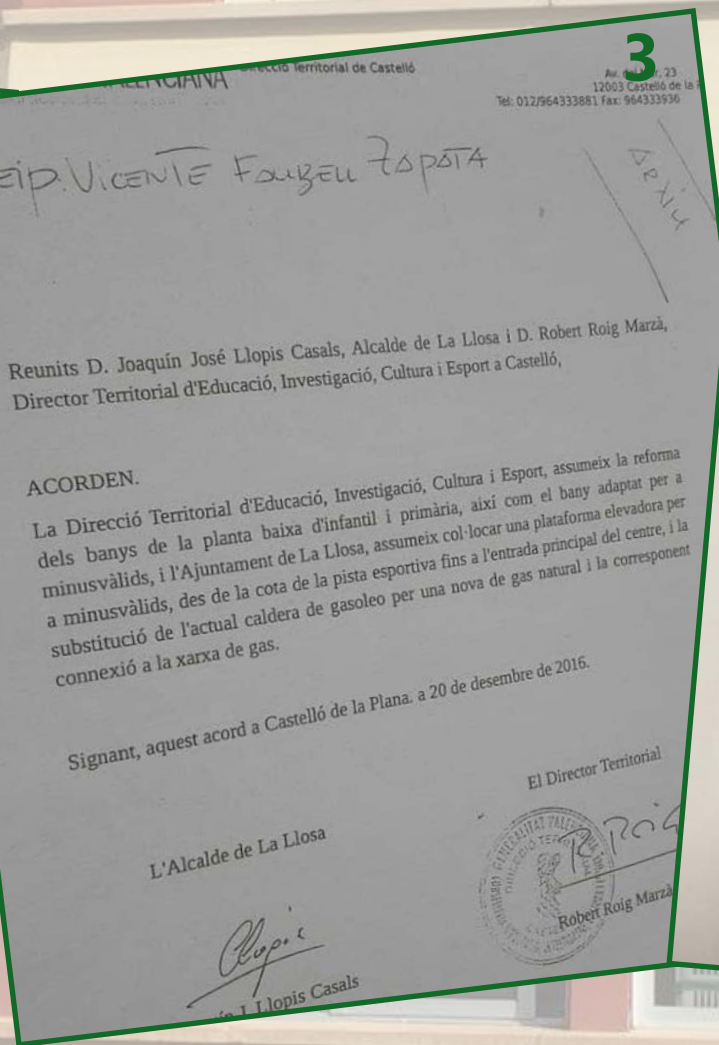 3
Direcció Territorial de Castelló
VALENCIANA
Av. del Mar, 23
12003 Castelló de la
Tel: 012/964333881 Fax: 964333936
VICENTE
ZAPATA
Reunits D. Joaquín José Llopis Casals, Alcalde de La Llosa i D. Robert Roig Marzà,
Director Territorial d'Educació, Investigació, Cultura i Esport a Castelló,
ACORDEN.
La Direcció Territorial d'Educació, Investigació, Cultura i Esport, assumeix la reforma
dels banys de la planta baixa d'infantil i primària, així com el bany adaptat per a
minusvàlids, i l'Ajuntament de La Llosa, assumeix col·locar una plataforma elevadora per
a minusvàlids, des de la cota de la pista esportiva fins a l'entrada principal del centre, i la
substitució de l'actual caldera de gasoleo per una nova de gas natural i la corresponent
connexió a la xarxa de gas.
Signant, aquest acord a Castelló de la Plana. a 20 de desembre de 2016.
El Director Territorial
L'Alcalde de La Llosa
R Roig
Robert Roig Marzà
Llopis
J. Llopis Casals